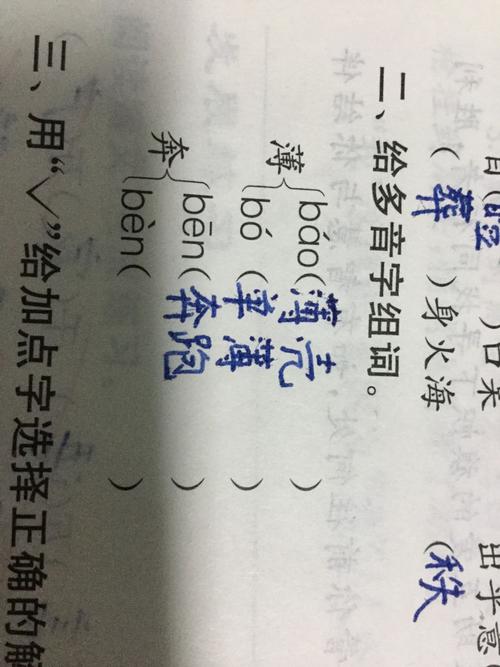 )口呆 出乎意
(葬 )身火海 (秩
二、给多音字组词。
薄{báo(薄壳 )
bó (单薄 )
奔{bēn(奔跑 )
bèn( )
三、用“√”给加点字选择正确的解